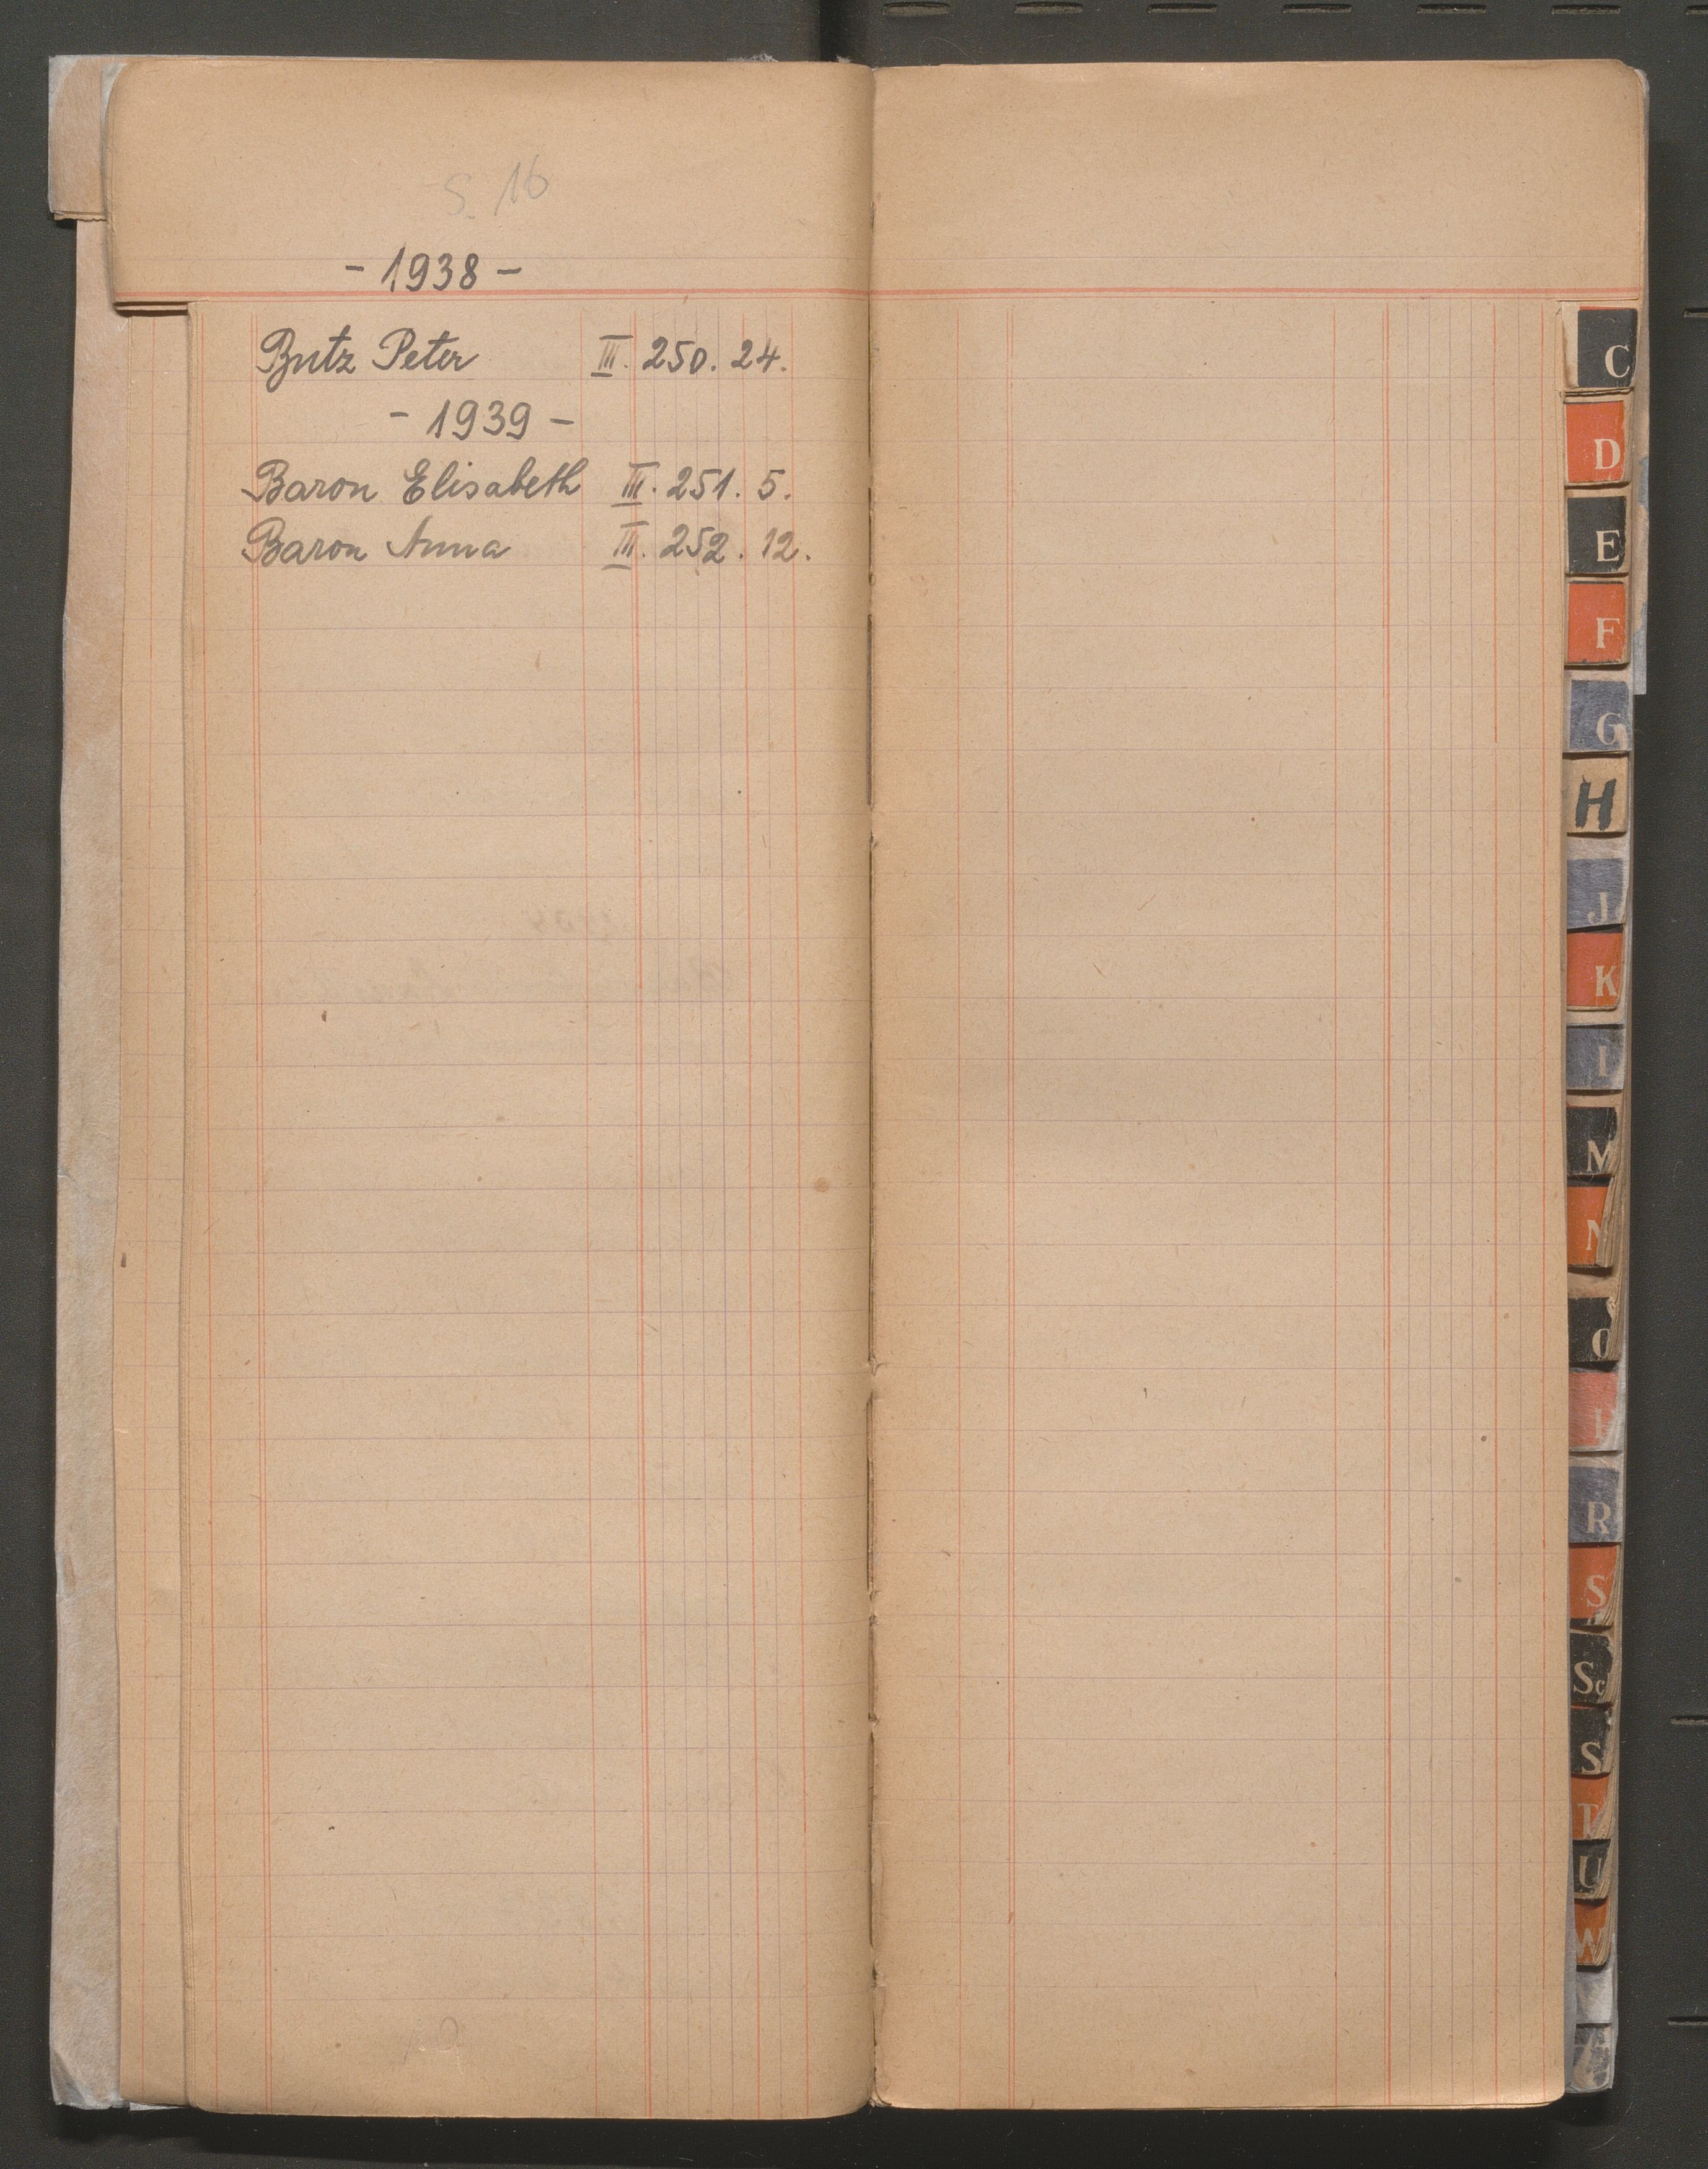 S. 16
- 1938 -
Butz Peter III. 250. 24.
- 1939 -
Baron Elisabeth III. 251. 5.
Baron Anna III. 252. 12.
C
D
E
F
G
H
J
K
M
N
O
R
S
Sc
S
T
U
W